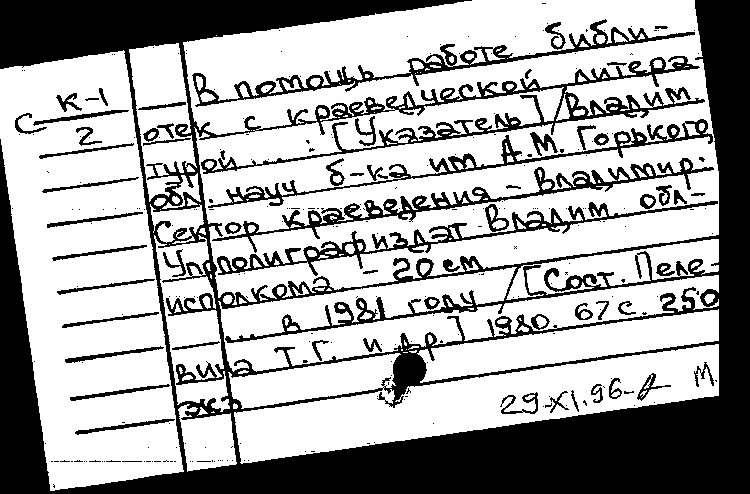 К-1
С- 2
В помощь работе библи-
отек с краеведческой литера-
турой... : [Указатель] / Владим.
обл. науч б-ка им. А.М. Горького,
Сектор краеведения - Владимир:
Упрполиграфиздат Владим. обл-
исполкома. - 20 см
... в 1981 году / [Сост. Пеле-
вина Т.Г. и др.] 1980. 67 с. 250
экз
29-XI.96- М